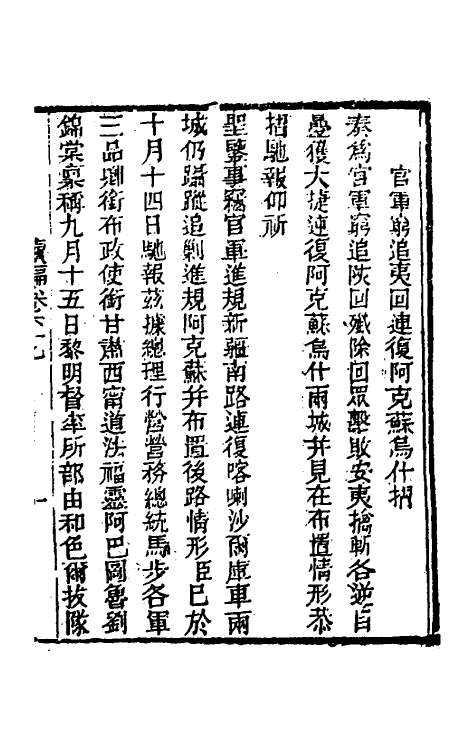 官軍窮追夷回連復阿克蘇烏什摺
奏爲官軍窮追陝回殲除回眾擊敗安夷擒斬各逆目
疊獲大捷連復阿克蘇烏什兩城并見在布置情形恭
摺馳報仰祈
聖鑒事竊官軍進規新疆南路連復喀喇沙爾庫車兩
城仍躡蹤追剿進規阿克蘇并布置後路情形臣已於
十月十四日馳報茲據總理行營營務總統馬步各軍
三品卿銜布政使銜甘肅西甯道法福靈阿巴圖魯劉
錦棠稟稱九月十五日黎明督率所部由和色爾拔隊
續編卷六十七
一